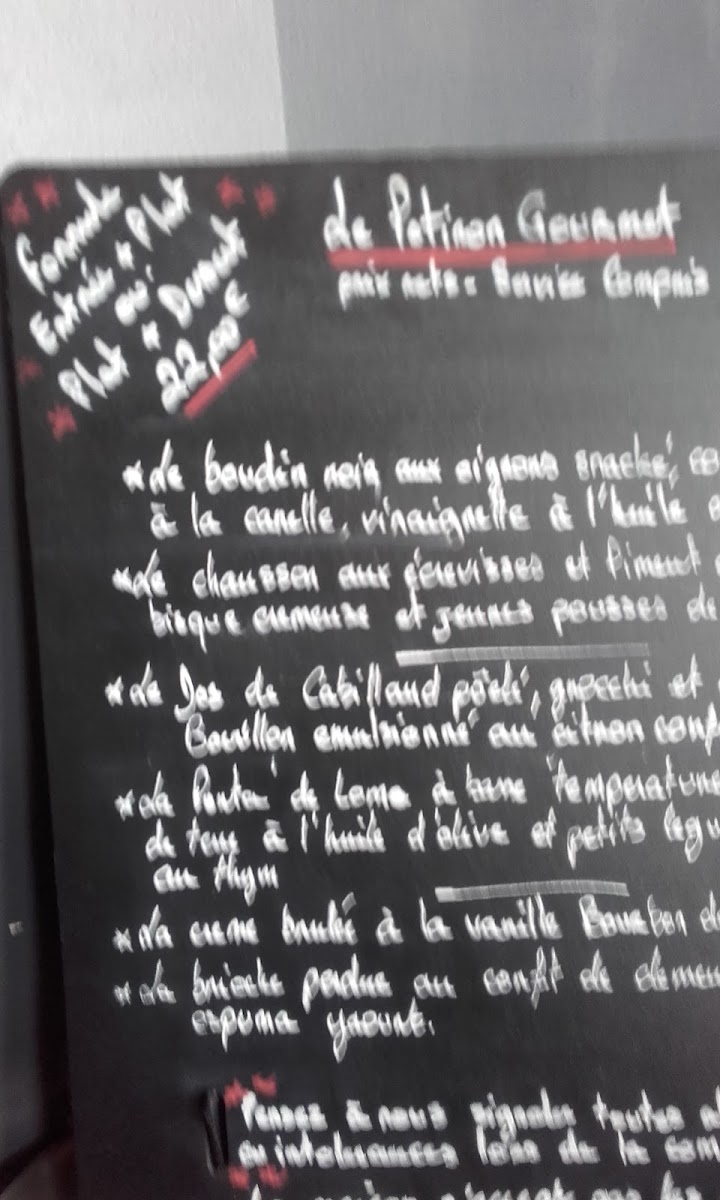 Formule
Entrée + Plat
ou
Plat + Dessert
22,00€
Le Potiron Gourmet
prix nets - Service Compris
*Le boudin noir aux oignons snacké,
à la canelle, vinaigrette à l'huile
*Le chausson aux écrevisses et Piment
bisque crémeuse et jeunes pousses de
*Le Dos de Cabillaud poêlé, gnocchi et
Bouillon émulsionné au citron
*La de à basse température
de à l'huile d'olive et petits
au thym
*La crème brulée à la vanille Bourbon
*La brioche perdue au confit de
espuma yaourt.
Pensez à nous signaler toutes
ou intolérances lors de la